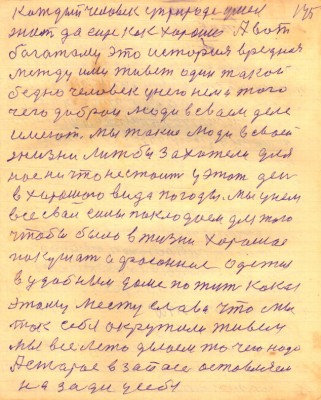 Каждый человек с природе умел 175
жит да еще как хорошо А вот
богатому это история вредная
между ими живет один такой
бедно человек у него нема того
чего доброи люди в своем деле
имеют. Мы такие люди в своей
жизни лиш бы захотели для
нас ничто нестоит у этот ден
в хорошого вида погоды. Мы унем
все свои силы покладаем для того
чтобы было в жизни хорошое
покушат и фасонно одется
в удобным доме пожит кокое
этому месту слава что мы
так себя окружили живем
мы все лето делаем то чего надо
А старое в запасе оставляем
на зади усебя